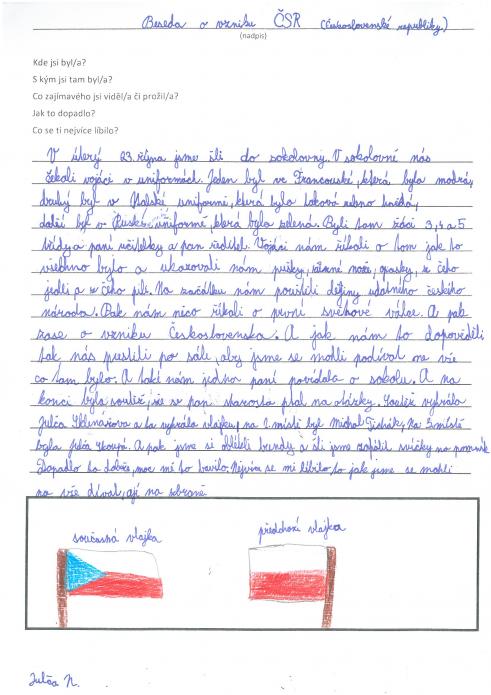 Beseda o vzniku ČSR (Československé republiky.)
(nadpis)
Kde jsi byl/a?
S kým jsi tam byl/a?
Co zajímavého jsi viděl/a či prožil/a?
Jak to dopadlo?
Co se ti nejvíce líbilo?
V úterý 23. října jsme šli do sokolovny. V sokolovně nás
čekali vojáci v uniformách. Jeden byl ve Francouské, která byla modrá,
druhý byl v Italské uniformě, která byla takova hnědá,
další byl v Ruské uniformě, která byla zelena. Byli tam žáci 3, 4 a 5
třídy a pani učitelky a pan ředitel. Vojáci nám říkali o tom jak to
všechno bylo a ukazovali nám pušky, nože, opasky, z čeho
jedli a z čeho pili. Na začátku nám poustili dějiny udatného českého
národa. Pak nám něco říkali o první světové válce. A pak
zase o vzniku Československa. A jak nám to dopověděli
tak nás pustili po sále, aby jsme se mohli podívat na vše
co tam bylo. A také nám jedna paní povídala o sokolu. A na
konci byla soutěž, že se pan starosta ptal na otázky. Soutěž vyhrála
Julča a ta vyhrála vlajku, na 2. místě byl Michal Na 3. místě
byla Julča A pak jsme si oblékli bundy a šli jsme zapálit svíčky na pomník
Dopadlo to dobře, moc mě to bavilo. Nejvíce se mi líbilo to jak jsme se mohli
na vše dívat, ají na zbraně.
současná vlajka
předchozí vlajka
Julča N.